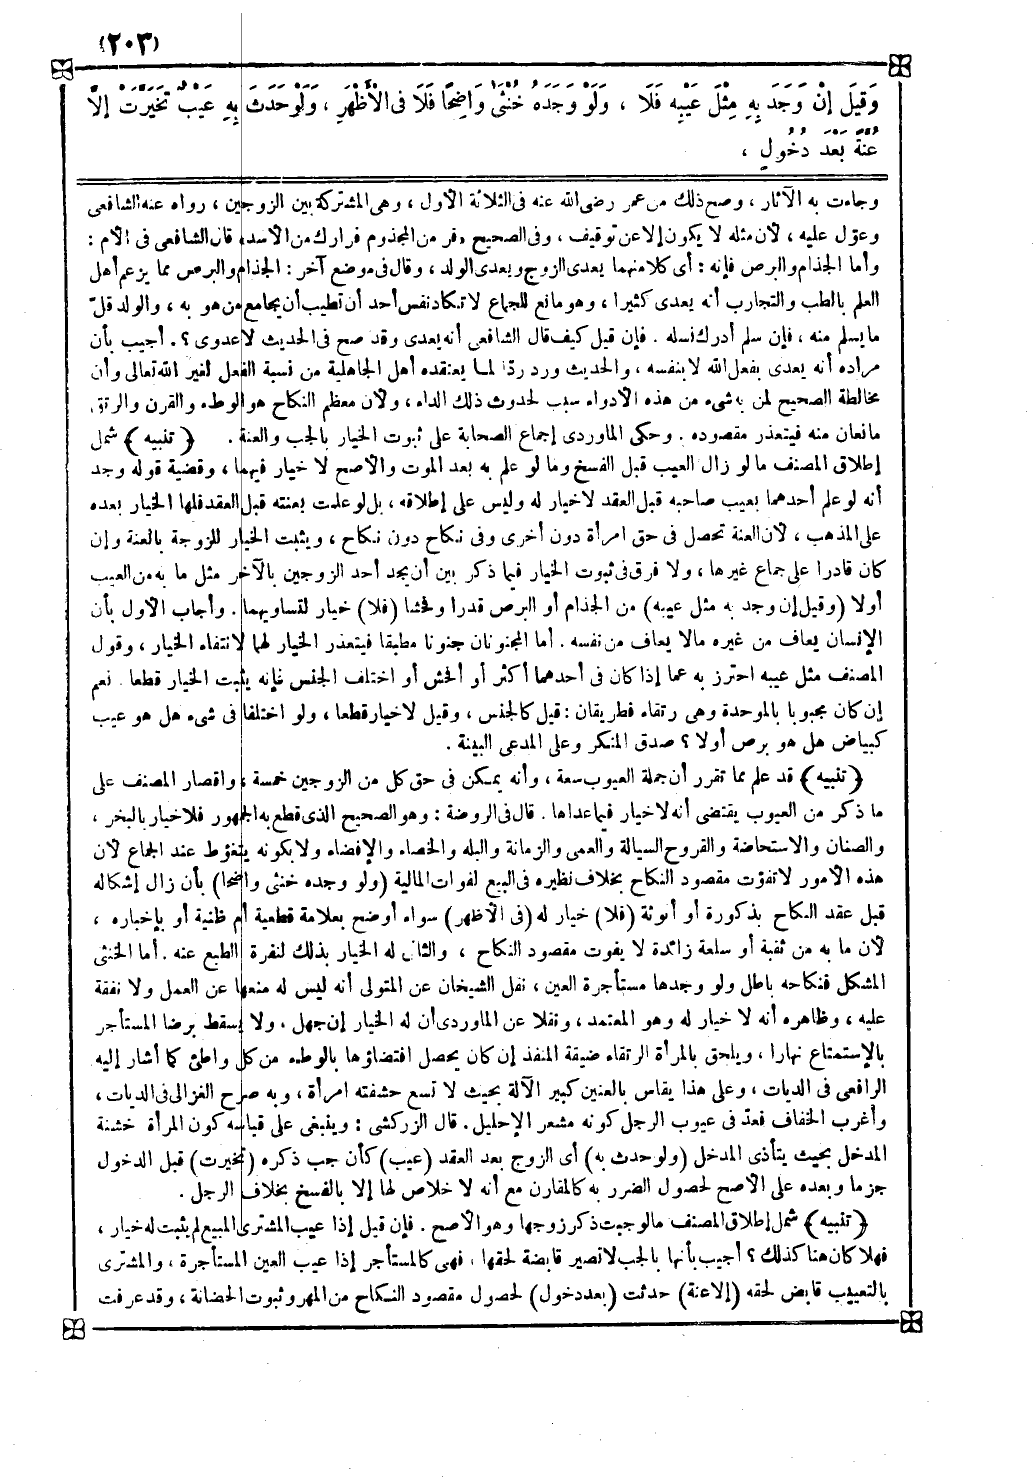 (٢٠٣)
وَقِيلَ إِنْ وَجَدَ بِهِ مِثْلَ عَيْبِهِ فَلَا ، وَلَوْ وَجَدَهُ خُنْثَى وَاضِحًا فَلَا فِى الْأَظْهَرِ ، وَلَوْ حَدَثَ بِهِ عَيْبٌ تَخَيَّرَتْ إِلَّا
عُنَّةً بَعْدَ دُخُولٍ ،
وجاءت به الآثار ، وصح ذلك من عمر رضى الله عنه فى الثلاثة الأول ، وهى المشتركة بين الزوجين ، رواه عنه الشافعى
وعوّل عليه ، لأن مثله لا يكون إلا عن توقيف ، وفى الصحيح «فر من المجذوم فرارك من الأسد» قال الشافعى فى الأم :
وأما الجذام والبرص فإنه : أى كلا منهما يعدى الزوج ويعدى الولد ، وقال فى موضع آخر : الجذام والبرص مما يزعم أهل
العلم بالطب والتجارب أنه يعدى كثيرا ، وهو مانع للجماع لا تكاد نفس أحد أن تطيب أن يجامع من هو به ، والولد قلّ
ما يسلم منه ، فإن سلم أدرك نسله . فإن قيل كيف قال الشافعى أنه يعدى وقد صح فى الحديث لا عدوى ؟ . أجيب بأن
مراده أنه يعدى بفعل الله لا بنفسه ، والحديث ورد ردّا لما يعتقده أهل الجاهلية من نسبة الفعل لغير الله تعالى وأن
مخالطة الصحيح لمن به شىء من هذه الأدواء سبب لحدوث ذلك الداء ، ولأن معظم النكاح هو الوطء والقرن والرتق
مانعان منه فيتعذر مقصوده . وحكى الماوردى إجماع الصحابة على ثبوت الخيار بالجب والعنة . ﴿ تنبيه ﴾ شمل
إطلاق المصنف ما لو زال العيب قبل الفسخ وما لو علم به بعد الموت والأصح لا خيار فيهما ، وقضية قوله وجد
أنه لو علم أحدهما بعيب صاحبه قبل العقد لا خيار له وليس على إطلاقه ، بل لو علمت بعنته قبل العقد فلها الخيار بعده
على المذهب ، لأن العنة تحصل فى حق امرأة دون أخرى وفى نكاح دون نكاح ، ويثبت الخيار للزوجة بالعنة وإن
كان قادرا على جماع غيرها ، ولا فرق فى ثبوت الخيار فيما ذكر بين أن يجد أحد الزوجين بالآخر مثل ما به من العيب
أولا (وقيل إن وجد به مثل عيبه) من الجذام أو البرص قدرا وفحشا (فلا) خيار لتساويهما . وأجاب الأول بأن
الإنسان يعاف من غيره مالا يعاف من نفسه . أما المجنونان جنونا مطبقا فيتعذر الخيار لهما لانتفاء الخيار ، وقول
المصنف مثل عيبه احترز به عما إذا كان فى أحدهما أكثر أو أفحش أو اختلف الجنس فإنه يثبت الخيار قطعا . نعم
إن كان مجبوبا بالموحدة وهى رتقاء فطريقان : قيل كالجنس ، وقيل لا خيار قطعا ، ولو اختلفا فى شىء هل هو عيب
كبياض هل هو برص أولا ؟ صدق المنكر وعلى المدعى البينة .
﴿ تنبيه ﴾ قد علم مما تقرر أن جملة العيوب سعة ، وأنه يمكن فى حق كل من الزوجين خمسة ، واقصار المصنف على
ما ذكر من العيوب يقتضى أنه لا خيار فيما عداها . قال فى الروضة : وهو الصحيح الذى قطع به الجمهور فلا خيار بالبخر ،
والصنان والاستحاضة والقروح السيالة والعمى والزمانة والبله والخصاء والإفضاء ولا بكونه يتغوّط عند الجماع لأن
هذه الأمور لا تفوّت مقصود النكاح بخلاف نظيره فى البيع لفوات المالية (ولو وجده خنثى واضحا) بأن زال إشكاله
قبل عقد النكاح بذكورة أو أنوثة (فلا) خيار له (فى الأظهر) سواء أوضح بعلامة قطعية أم ظنية أو بإخباره ،
لأن ما به من ثقبة أو سلعة زائدة لا يفوت مقصود النكاح ، والثانى له الخيار بذلك لنفرة الطبع عنه . أما الخنثى
المشكل فنكاحه باطل ولو وجدها مستأجرة العين ، نفل الشيخان عن المتولى أنه ليس له منعها عن العمل ولا نفقة
عليه ، وظاهره أنه لا خيار له وهو المعتمد ، ونقلا عن الماوردى أن له الخيار إن جهل ، ولا يسقط برضا المستأجر
بالإستمتاع نهارا ، ويلحق بالمرأة الرتقاء ضيقة المنفذ إن كان يحصل افتضاؤها بالوطء من كل واطئ كما أشار إليه
الرافعى فى الديات ، وعلى هذا يقاس بالعنين كبير الآلة بحيث لا تسع حشفته امرأة ، وبه صرح الغزالى فى الديات ،
وأغرب الخفاف فعدّ فى عيوب الرجل كونه مشعر الإحليل . قال الزركشى : وينبغى على قياسه كون المرأة خشنة
المدخل بحيث يتأذى المدخل (ولو حدث به) أى الزوج بعد العقد (عيب) كأن جب ذكره (تخيرت) قبل الدخول
جزما وبعده على الأصح لحصول الضرر به كالمقارن مع أنه لا خلاص لها إلا بالفسخ بخلاف الرجل .
﴿ تنبيه ﴾ شمل إطلاق المصنف ما لو جبت ذكر زوجها وهو الأصح . فإن قيل إذا عيب المشترى المبيع لم يثبت له خيار ،
فهلا كان هنا كذلك ؟ أجيب بأنها بالجب لا تصير قابضة لحقها ، فهى كالمستأجر إذا عيب العين المستأجرة ، والمشترى
بالتعييب قابض لحقه (إلا عنة) حدثت (بعد دخول) لحصول مقصود النكاح من المهر وثبوت الحضانة ، وقد عرفت